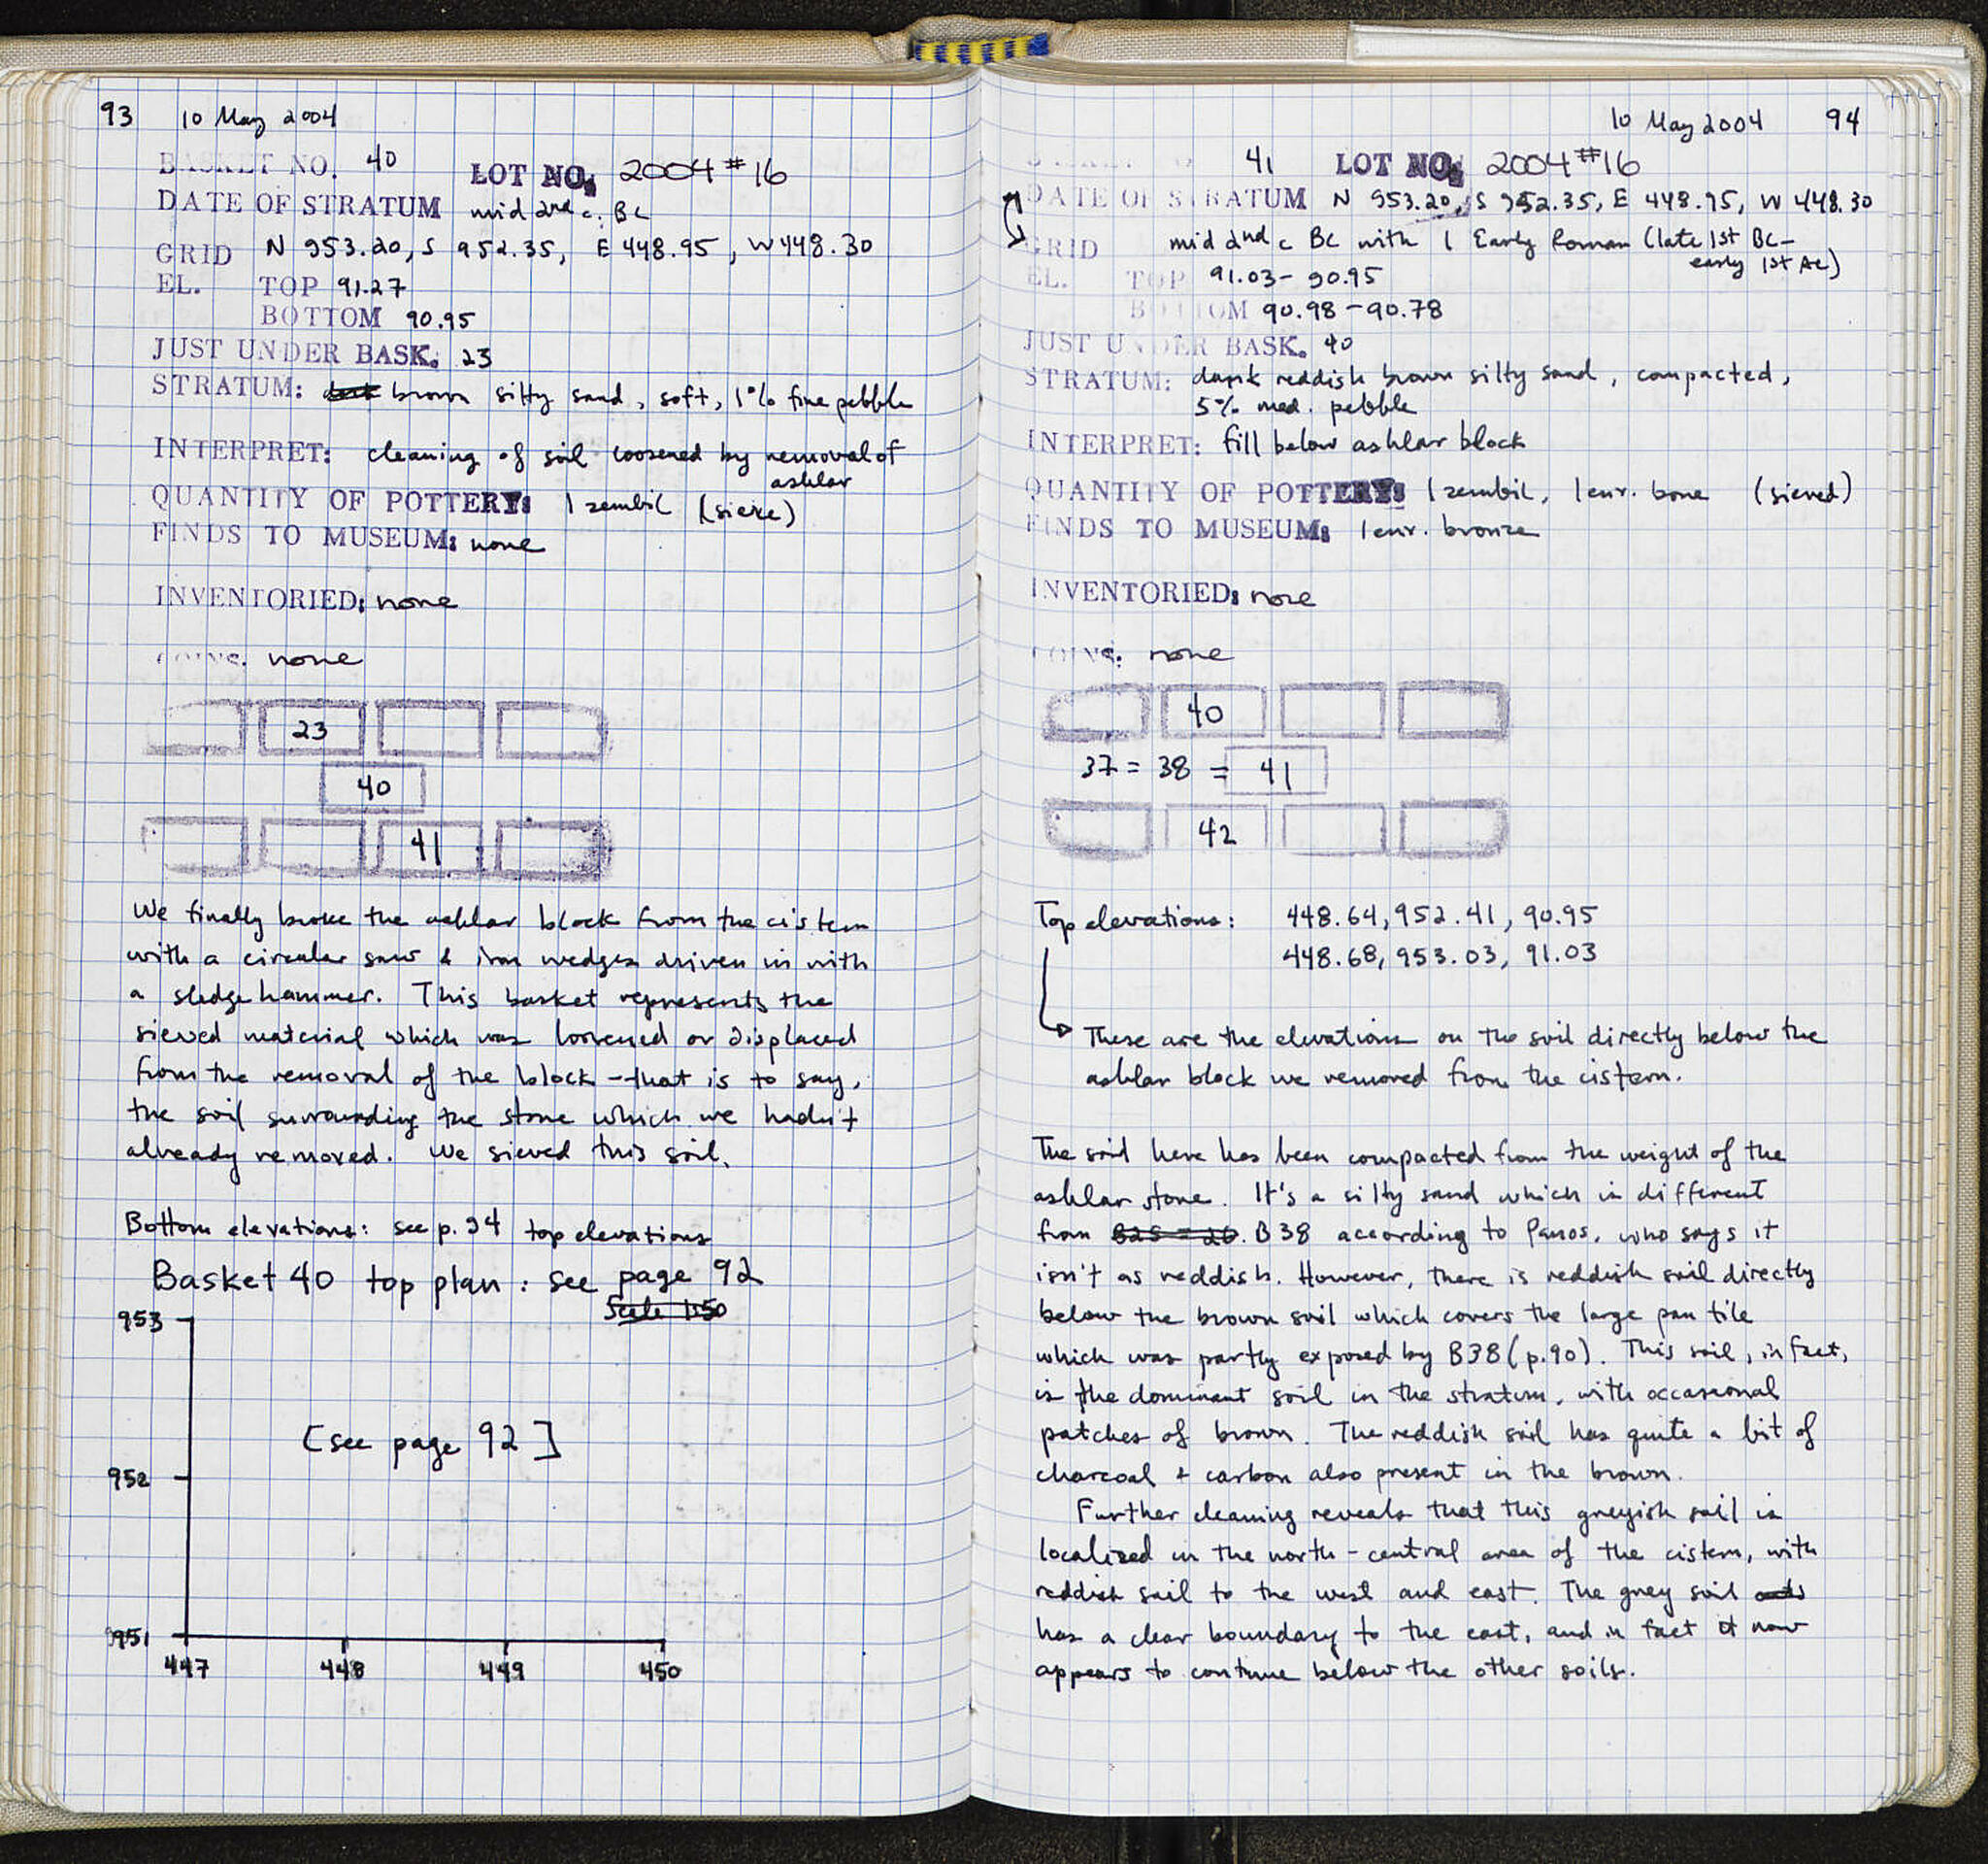 93 10 May 2004
BASKET NO. 40 LOT NO. 2004 #16
DATE OF STRATUM mid 2nd c. BC
GRID N 953.20, S 952.35, E 448.95, W 448.30
EL. TOP 91.27
BOTTOM 90.95
JUST UNDER BASK. 23
STRATUM: brown silty sand, soft, 1% fine pebble
INTERPRET: cleaning of soil loosened by removal of
ashlar
QUANTITY OF POTTERY: 1 zembil (sieve)
FINDS TO MUSEUM: none
INVENTORIED: none
COINS: none
23
40
41
We finally broke the ashlar block from the cistern
with a circular saw & iron wedges driven in with
a sledge hammer. This basket represents the
sieved material which was loosened or displaced
from the removal of the block - that is to say,
the soil surrounding the stone which we hadn't
already removed. We sieved this soil.
Bottom elevations: see p. 94 top elevations
Basket 40 top plan: see page 92
Scale 1:50
953
[see page 92]
952
951
447 448 449 450
10 May 2004 94
41 LOT NO. 2004 #16
DATE OF STRATUM N 953.20, S 952.35, E 448.95, W 448.30
GRID mid 2nd c BC with 1 Early Roman (late 1st BC-
early 1st AC)
EL. TOP 91.03 - 90.95
BOTTOM 90.98 - 90.78
JUST UNDER BASK. 40
STRATUM: dark reddish brown silty sand, compacted,
5% med. pebble
INTERPRET: fill below ashlar block
QUANTITY OF POTTERY: 1 zembil, 1 env. bone (sieved)
FINDS TO MUSEUM: 1 env. bronze
INVENTORIED: none
COINS: none
40
37 = 38 = 41
42
Top elevations: 448.64, 952.41, 90.95
448.68, 953.03, 91.03
These are the elevations on the soil directly below the
ashlar block we removed from the cistern.
The soil here has been compacted from the weight of the
ashlar stone. It's a silty sand which is different
from B25 = 26. B38 according to Panos, who says it
isn't as reddish. However, there is reddish soil directly
below the brown soil which covers the large pan tile
which was partly exposed by B38 (p.90). This soil, in fact,
is the dominant soil in the stratum, with occasional
patches of brown. The reddish soil has quite a bit of
charcoal & carbon also present in the brown.
Further cleaning reveals that this greyish soil is
localized in the north-central area of the cistern, with
reddish soil to the west and east. The grey soil
has a clear boundary to the east, and in fact it now
appears to continue below the other soils.